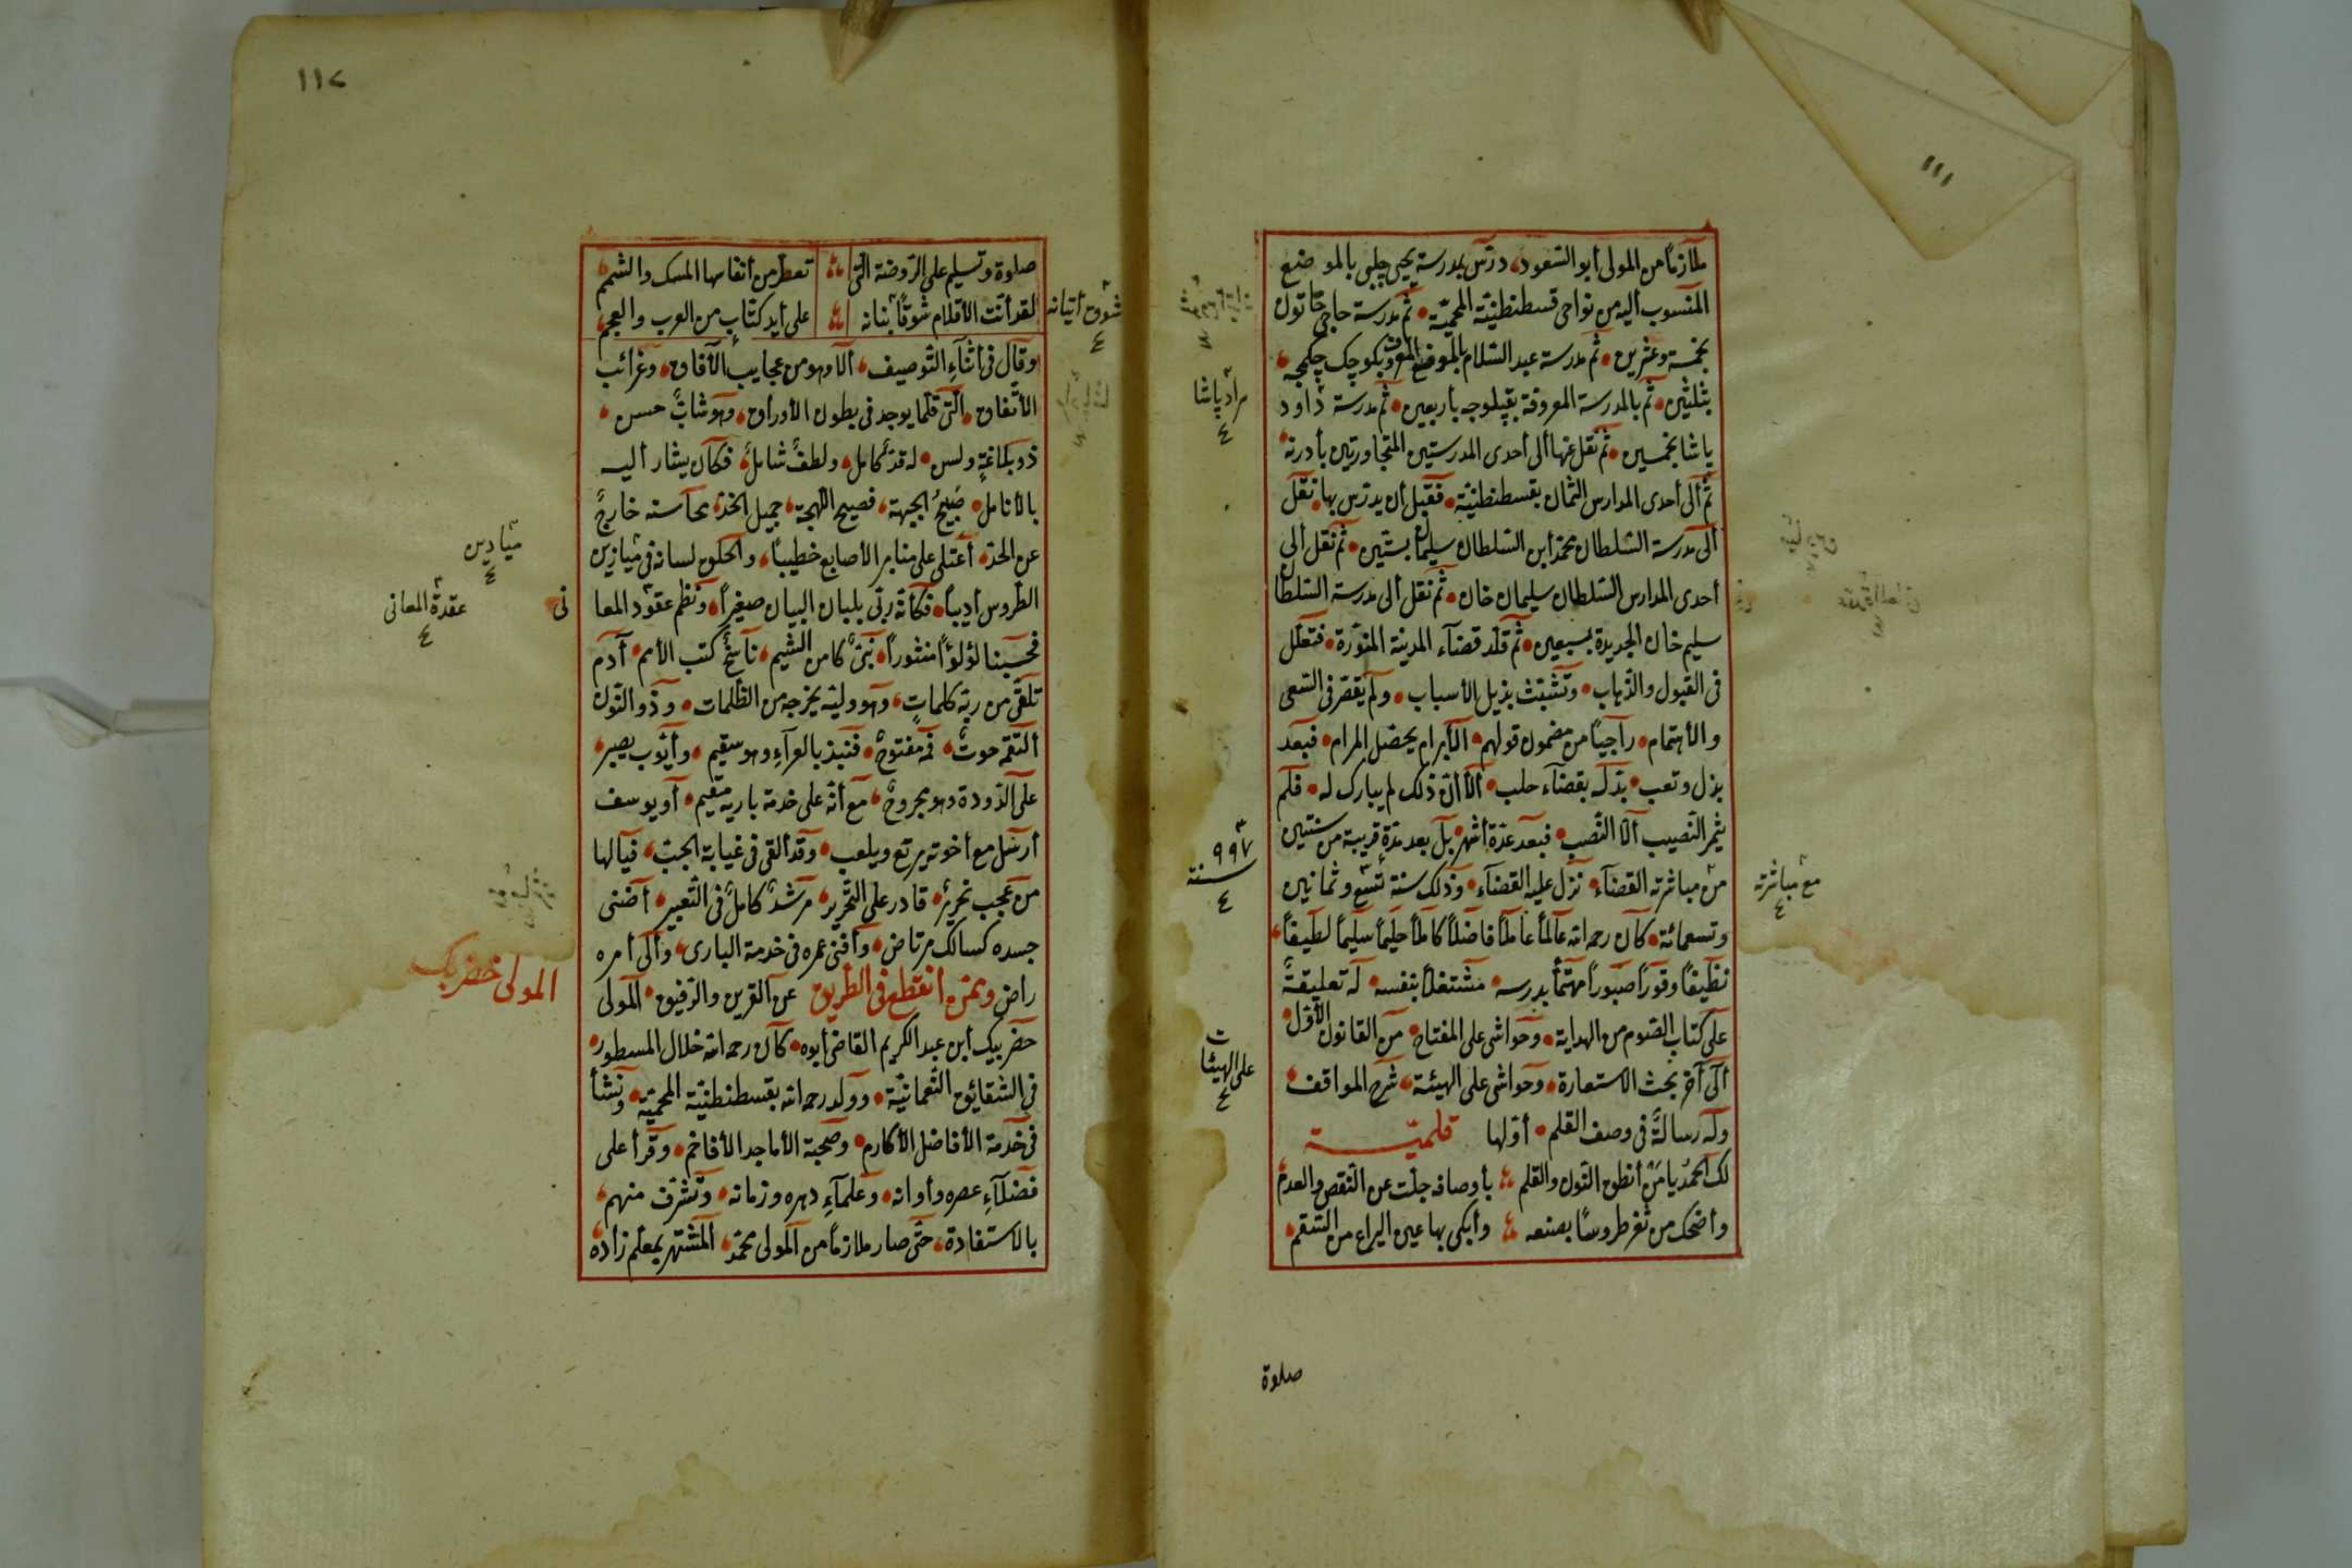 ١١١
ملازماً من المولى أبو السعود، درّس بمدرسة يحيى چلبى بالموضع
المنسوب أليه من نواحى قسطنطينيّة المحميّة، ثم مدرسة حاجى خاتون
بخمسة وعشرين، ثم مدرسة عبد السلام بالموضع المعروف بكوچك چكمجه،
بثلثين، ثم بالمدرسة المعروفة بقپلوجه بأربعين، ثم مدرسة داود
پاشا بخمسين، ثم نقل عنها ألى أحدى المدرستين المتجاورتين بأدرنه،
ثم ألى أحدى المدارس الثمان بقسطنطنيّة، فقبل أن يدرّس بها، نقل
ألى مدرسة السلطان محمد أبن السلطان سليمان بستّين، ثم نقل ألى
أحدى المدارس السلطان سليمان خان، ثم نقل ألى مدرسة السلطان
سليم خان الجديدة بسبعين، ثم قلّد قضاء المدينة المنوّرة، فتعلّل
فى القبول والذهاب، وتشبّث بذيل الأسباب، ولم يقصّر فى السعى
والأهتمام، راجياً من مضمون قولهم، الأبرام يحصّل المرام، فبعد
بذل وتعب، بدّله بقضاء حلب، ألا أنّ ذلك لم يبارك له، فلم
يثمر النصيب ألا النصب، فبعد عدّة أشهر، بل بعد مدّة قريبة من سنتين
من مباشرته القضاء، نزل عليه القضاء، وذلك سنة تسع وثمانين
وتسعمائة، كان رحمه الله عالماً عاملاً فاضلاً كاملاً حليماً سليماً لطيفاً،
نظيفاً وقوراً صبوراً مهتمّاً بدرسه، مشتغلاً بنفسه، له تعليقةٌ
على كتاب الصوم من الهداية، وحواشى على المفتاح، من القانون الأوّل،
ألى آخر بحث الاستعارة، وحواشى على الهيئة، شرح المواقف،
وله رسالةٌ فى وصف القلم، أوّلها قلميّة
لك الحمد يا من أنطق النون والقلم بأوصاف جلّت عن النقص والعدم
وأضحك من ثغر طروساً بصنعه وأبكى بها عين اليراع من السقم،
مراد پاشا
٤
٩٩٧
سنة
٤
على الهيئا
٤
مع مباشرته
٤
صلوة
١١٢
صلوة وتسليم على الروضة التى تعطّر من أنفاسها المسك والشمم
لقد أنت الأقلام شوقاً بنانه على أيد كتّاب من العرب والعجم،
وقال فى أثناء التوصيف، ألا وهو من عجايب الأفاق، وغرائب
الأتّفاق، التى قلّما يوجد فى بطون الأوراق، وهو شابٌّ حسن،
ذو بلاغةٍ ولسن، له قدٌّ كامل، ولطفٌ شامل، فكان يشار أليه
بالأنامل، صبيح الجبهة، فصيح اللهجة، جميل الخدّ، محاسنه خارج
عن الحدّ، أعتلى على منابر الأصابع خطيباً، والحكون لسانه فى ميازين
الطروس أديباً، فكأنّه ربّى بلبان البيان صغيراً، ونظم عقود المعا
فحسبنا لؤلؤاً منثوراً، نبىٌّ كامن الشيم، ناسخ كتب الأمم، آدم
تلقّى من ربّه كلمات، وهو وليّه يخرجه من الظلمات، وذو النون
ألتقمه حوت، فمه مفتوح، فنبذ بالعراء وهو سقيم، وأيّوب يصبر
على الدودة وهو مجروح، مع أنّه على خدمة باريه مقيم، أو يوسف
أرسل مع أخوته يرتع ويلعب، وقد ألقى فى غيابة الجبّ، فيا لها
من عجب نحرير، قادر على التحرير، مرشد كامل فى التعبير، أضنى
جسده كسالك مرتاض، وأفنى عمره فى خدمة البارى، وألى أمره
راض وممّن أنقطع فى الطريق عن القرين والرفيق، المولى
حضر بيك أبن عبد الكريم القاضى أبوه، كان رحمه الله خلال المسطور،
فى الشقايق النعمانيّة، وولد رحمه الله بقسطنطنيّة المحميّة، ونشأ
فى خدمة الأفاضل الأكارم، وصحبة الأماجد الأفاخم، وقرأ على
فضلاء عصره وأوانه، وعلماء دهره وزمانه، وتشرّف منهم،
بالاستفادة، حتّى صار ملازماً من المولى محمد، المشتهر بمعلم زاده
شوق أتيانه
٤
ميادين
٤
نى
عقدة المعانى
٤
المولى خضر بك